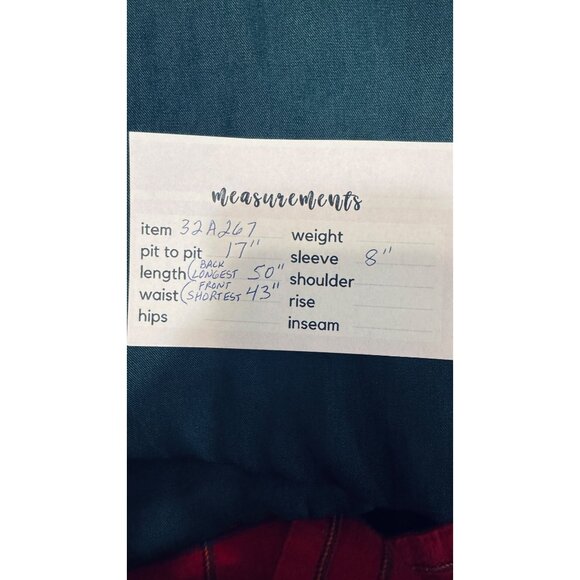 measurements
item 32A267
pit to pit 17"
length (BACK LONGEST 50"
waist (FRONT SHORTEST 43"
hips
weight
sleeve 8"
shoulder
rise
inseam